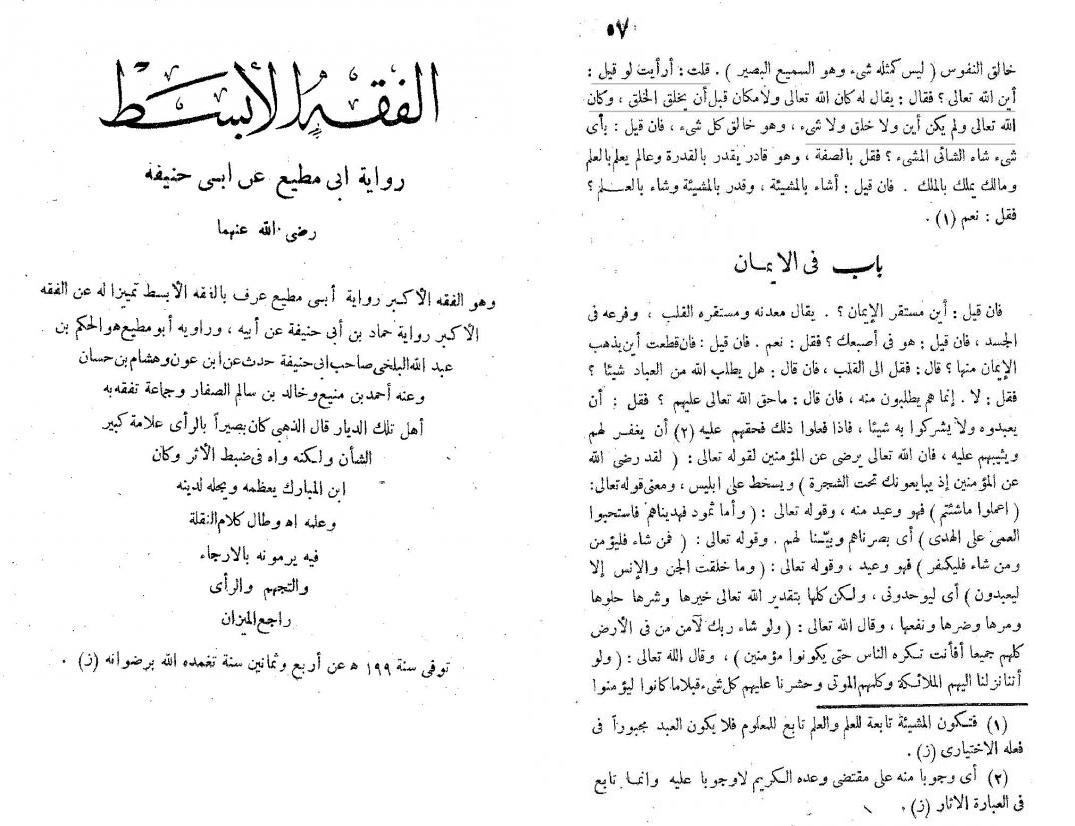 الفقه الأبسط
رواية ابى مطيع عن ابى حنيفه
رضى الله عنهما
وهو الفقه الأكبر رواية أبى مطيع عرف بالفقه الأبسط تمييزا له عن الفقه
الأكبر رواية حماد بن أبى حنيفة عن أبيه ، وراويه أبو مطيع هو الحكم بن
عبد الله البلخى صاحب ابى حنيفة حدث عن ابن عون وهشام بن حسان
وعنه أحمد بن منيع وخالد بن سالم الصفار وجماعة تفقه به
أهل تلك الديار قال الذهبى كان بصيراً بالرأى علامة كبير
الشأن ولكنه واه فى ضبط الأثر وكان
ابن المبارك يعظمه ويجله لدينه
وعلمه اه وطال كلام النقلة
فيه يرمونه بالارجاء
والتجهم والرأى
راجع الميزان
توفى سنة ١٩٩ ه عن أربع وثمانين سنة تغمده الله برضوانه (ز) .
٥٧
خالق النفوس ( ليس كمثله شىء وهو السميع البصير ) . قلت : أرأيت لو قيل :
أين الله تعالى ؟ فقال : يقال له كان الله تعالى ولا مكان قبل أن يخلق الخلق ، وكان
الله تعالى ولم يكن أين ولا خلق ولا شىء ، وهو خالق كل شىء ، فان قيل : بأى
شىء شاء الشائى المشىء ؟ فقل بالصفة ، وهو قادر يقدر بالقدرة وعالم يعلم بالعلم
ومالك يملك بالملك . فان قيل : أشاء بالمشيئة ، وقدر بالمشيئة وشاء بالعلم ؟
فقل : نعم (١) .
باب فى الايمان
فان قيل : أين مستقر الإيمان ؟ . يقال معدنه ومستقره القلب ، وفرعه فى
الجسد ، فان قيل : هو فى أصبعك ؟ فقل : نعم . فان قيل : فان قطعت أين يذهب
الإيمان منها ؟ قال : فقل الى القلب ، فان قال : هل يطلب الله من العباد شيئا ؟
فقل : لا . إنما هم يطلبون منه ، فان قال : ما حق الله تعالى عليهم ؟ فقل : أن
يعبدوه ولا يشركوا به شيئا ، فاذا فعلوا ذلك فحقهم عليه (٢) أن يغفر لهم
ويثيبهم عليه ، فان الله تعالى يرضى عن المؤمنين لقوله تعالى : ( لقد رضى الله
عن المؤمنين إذ يبايعونك تحت الشجرة ) ويسخط على ابليس ، ومعنى قوله تعالى:
( اعملوا ماشئتم ) فهو وعيد منه ، وقوله تعالى : ( وأما ثمود فهديناهم فاستحبوا
العمى على الهدى ) أى بصرناهم وبيّنا لهم . وقوله تعالى : ( فمن شاء فليؤمن
ومن شاء فليكفر ) فهو وعيد ، وقوله تعالى : ( وما خلقت الجن والإنس إلا
ليعبدون ) أى ليوحدونى ، ولكن كلها بتقدير الله تعالى خيرها وشرها حلوها
ومرها وضرها ونفعها ، وقال الله تعالى : ( ولو شاء ربك لآمن من فى الأرض
كلهم جميعا أفأنت تكره الناس حتى يكونوا مؤمنين ) ، وقال الله تعالى : ( ولو
أننا نزلنا اليهم الملائكة وكلمهم الموتى وحشرنا عليهم كل شىء قبلا ما كانوا ليؤمنوا
(١) فتكون المشيئة تابعة للعلم والعلم تابع للمعلوم فلا يكون العبد مجبوراً فى
فعله الاختيارى (ز) .
(٢) أى وجوبا منه على مقتضى وعده الكريم لا وجوبا عليه وانما تابع
فى العبارة الآثار (ز) .